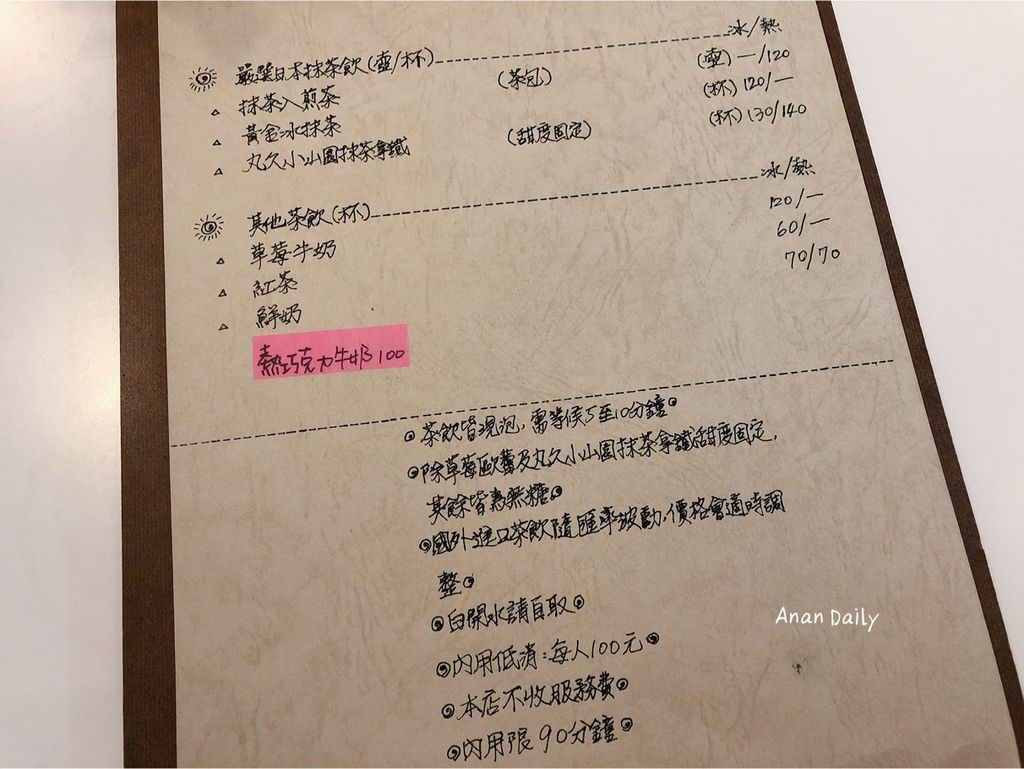 嚴選日本抹茶飲(壺/杯) 冰/熱
抹茶入煎茶 (茶包) (壺) —/120
黃金冰抹茶 (杯) 120/—
丸久小山園抹茶拿鐵 (甜度固定) (杯) 130/140
其他茶飲(杯) 冰/熱
草莓牛奶 120/—
紅茶 60/—
鮮奶 70/70
熱巧克力牛奶 100
茶飲皆現泡,需等候5至10分鐘。
除草莓歐蕾及丸久小山園抹茶拿鐵甜度固定,
其餘皆為無糖。
國外進口茶飲隨匯率波動,價格會適時調
整。
白開水請自取。
內用低消:每人100元。
本店不收服務費。
內用限90分鐘。
Anan Daily